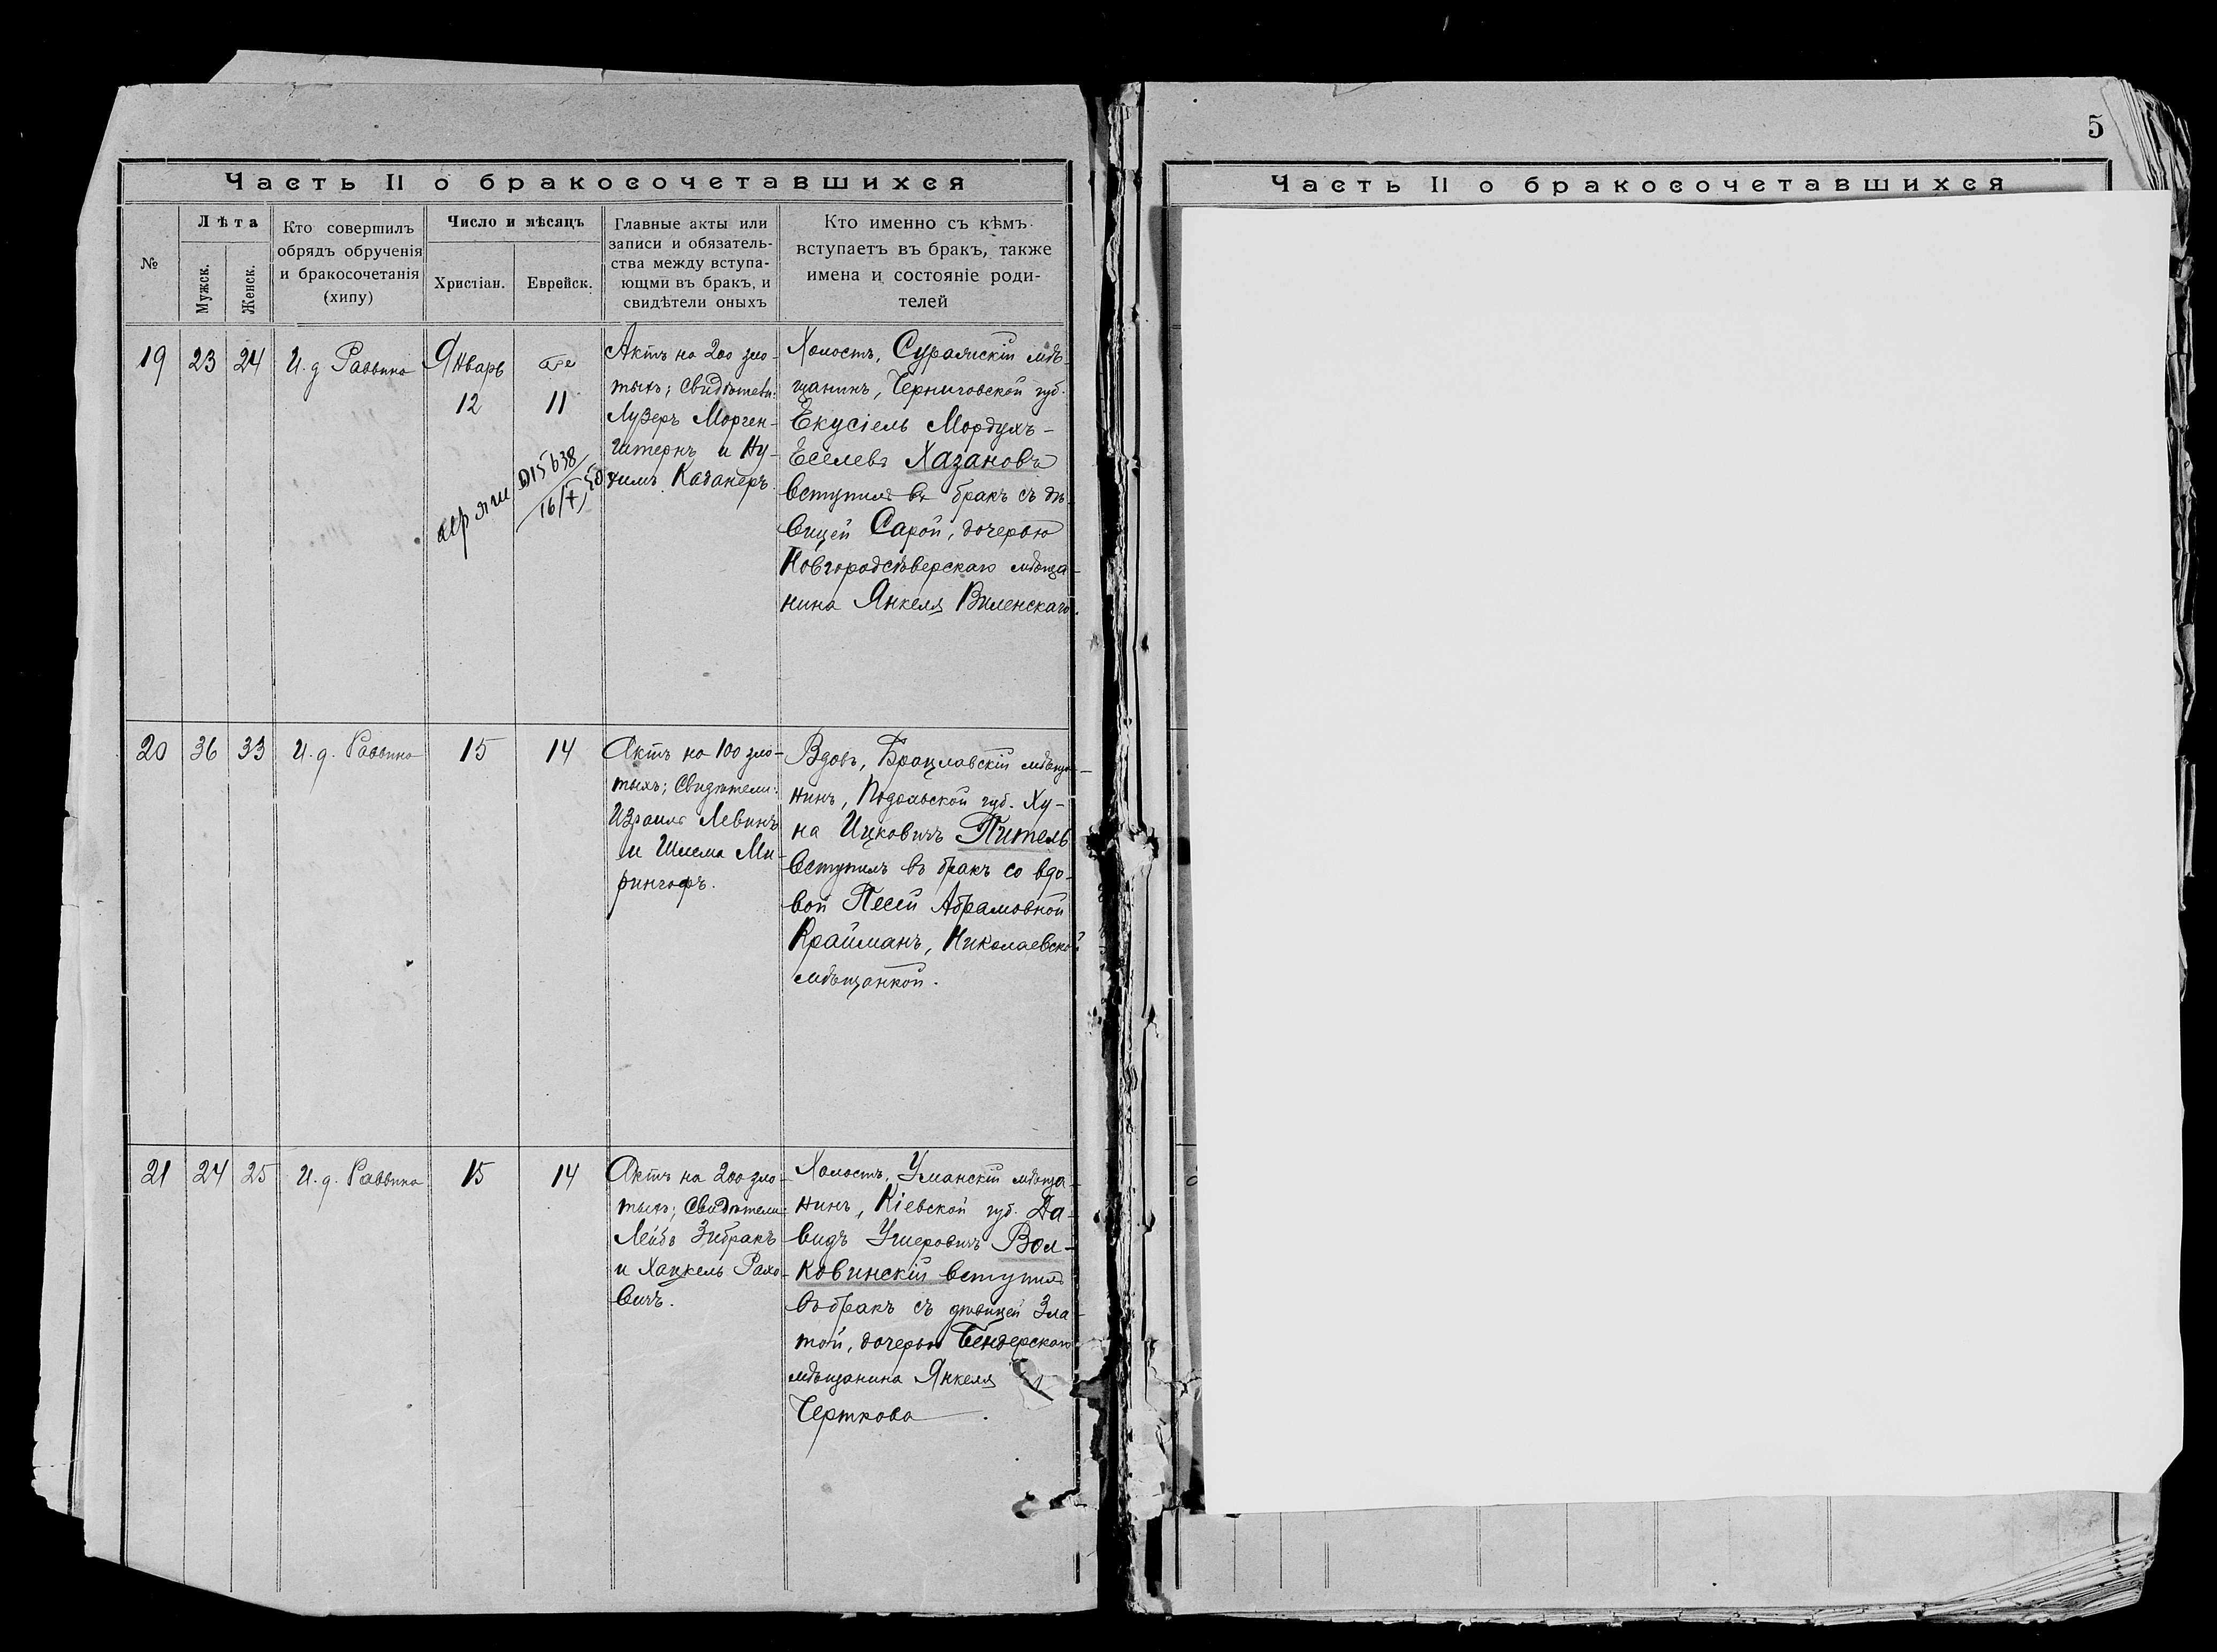 5
Часть II о бракосочетавшихся
№
Лѣта
Мужск.
Женск.
Кто совершилъ
обрядъ обрученія
и бракосочетанія
(хипу)
Число и мѣсяцъ
Христіан.
Еврейск.
Главные акты или
записи и обязатель-
ства между вступа-
ющми въ бракъ, и
свидѣтели оныхъ
Кто именно съ кѣмъ
вступаетъ въ бракъ, также
имена и состояніе роди-
телей
19
23
24
И. д Раввина
Январь
12
11
15638
Актъ на 200 зло-
тыхъ; Свидѣтели:
ЛузеръМорген-
штернъ и Ну-
химъ Казанеръ.
Холостъ, Суражскій мѣ-
щанинъ, Черниговской губ.
Екусіель Мордухъ-
Еселевъ Хазановъ
вступилъ въ бракъ съ дѣ-
вицей Сарой, дочерью
Новгородсѣверскаго мѣща-
нина Янкеля Виленскаго.
20
36
33
И. д. Раввина
15
14
Актъ на 100 зло-
тыхъ; Свидѣтели:
Израиль Левинъ
и Шлема Ми-
рингофъ.
Вдовъ, Брацлавскій мѣща-
нинъ, Подольской губ. Ху-
на Ицковичъ Питель
вступилъ въ бракъ со вдо-
вой Песей Абрамовной
Крайманъ, Николаевской
мѣщанкой.
21
24
25
И. д. Раввина
15
14
Актъ на 200 зло-
тыхъ; Свидѣтели
Лейбъ Зибракъ
и Хацкель Рахо-
вичъ.
Холостъ, Уманскій мѣща-
нинъ, Кіевской губ. Да-
видъ Ушеровичъ Вол-
ковинскій вступилъ
въ бракъ съ дѣвицей Зла-
той, дочерью Бендерскаго
мѣщанина Янкеля
Черткова.
Часть II о бракосочетавшихся